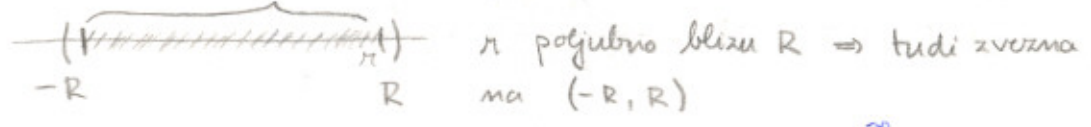 ( ) r poljubno blizu R ⇒ tudi zvezna
r
-R R na (-R, R)
∞